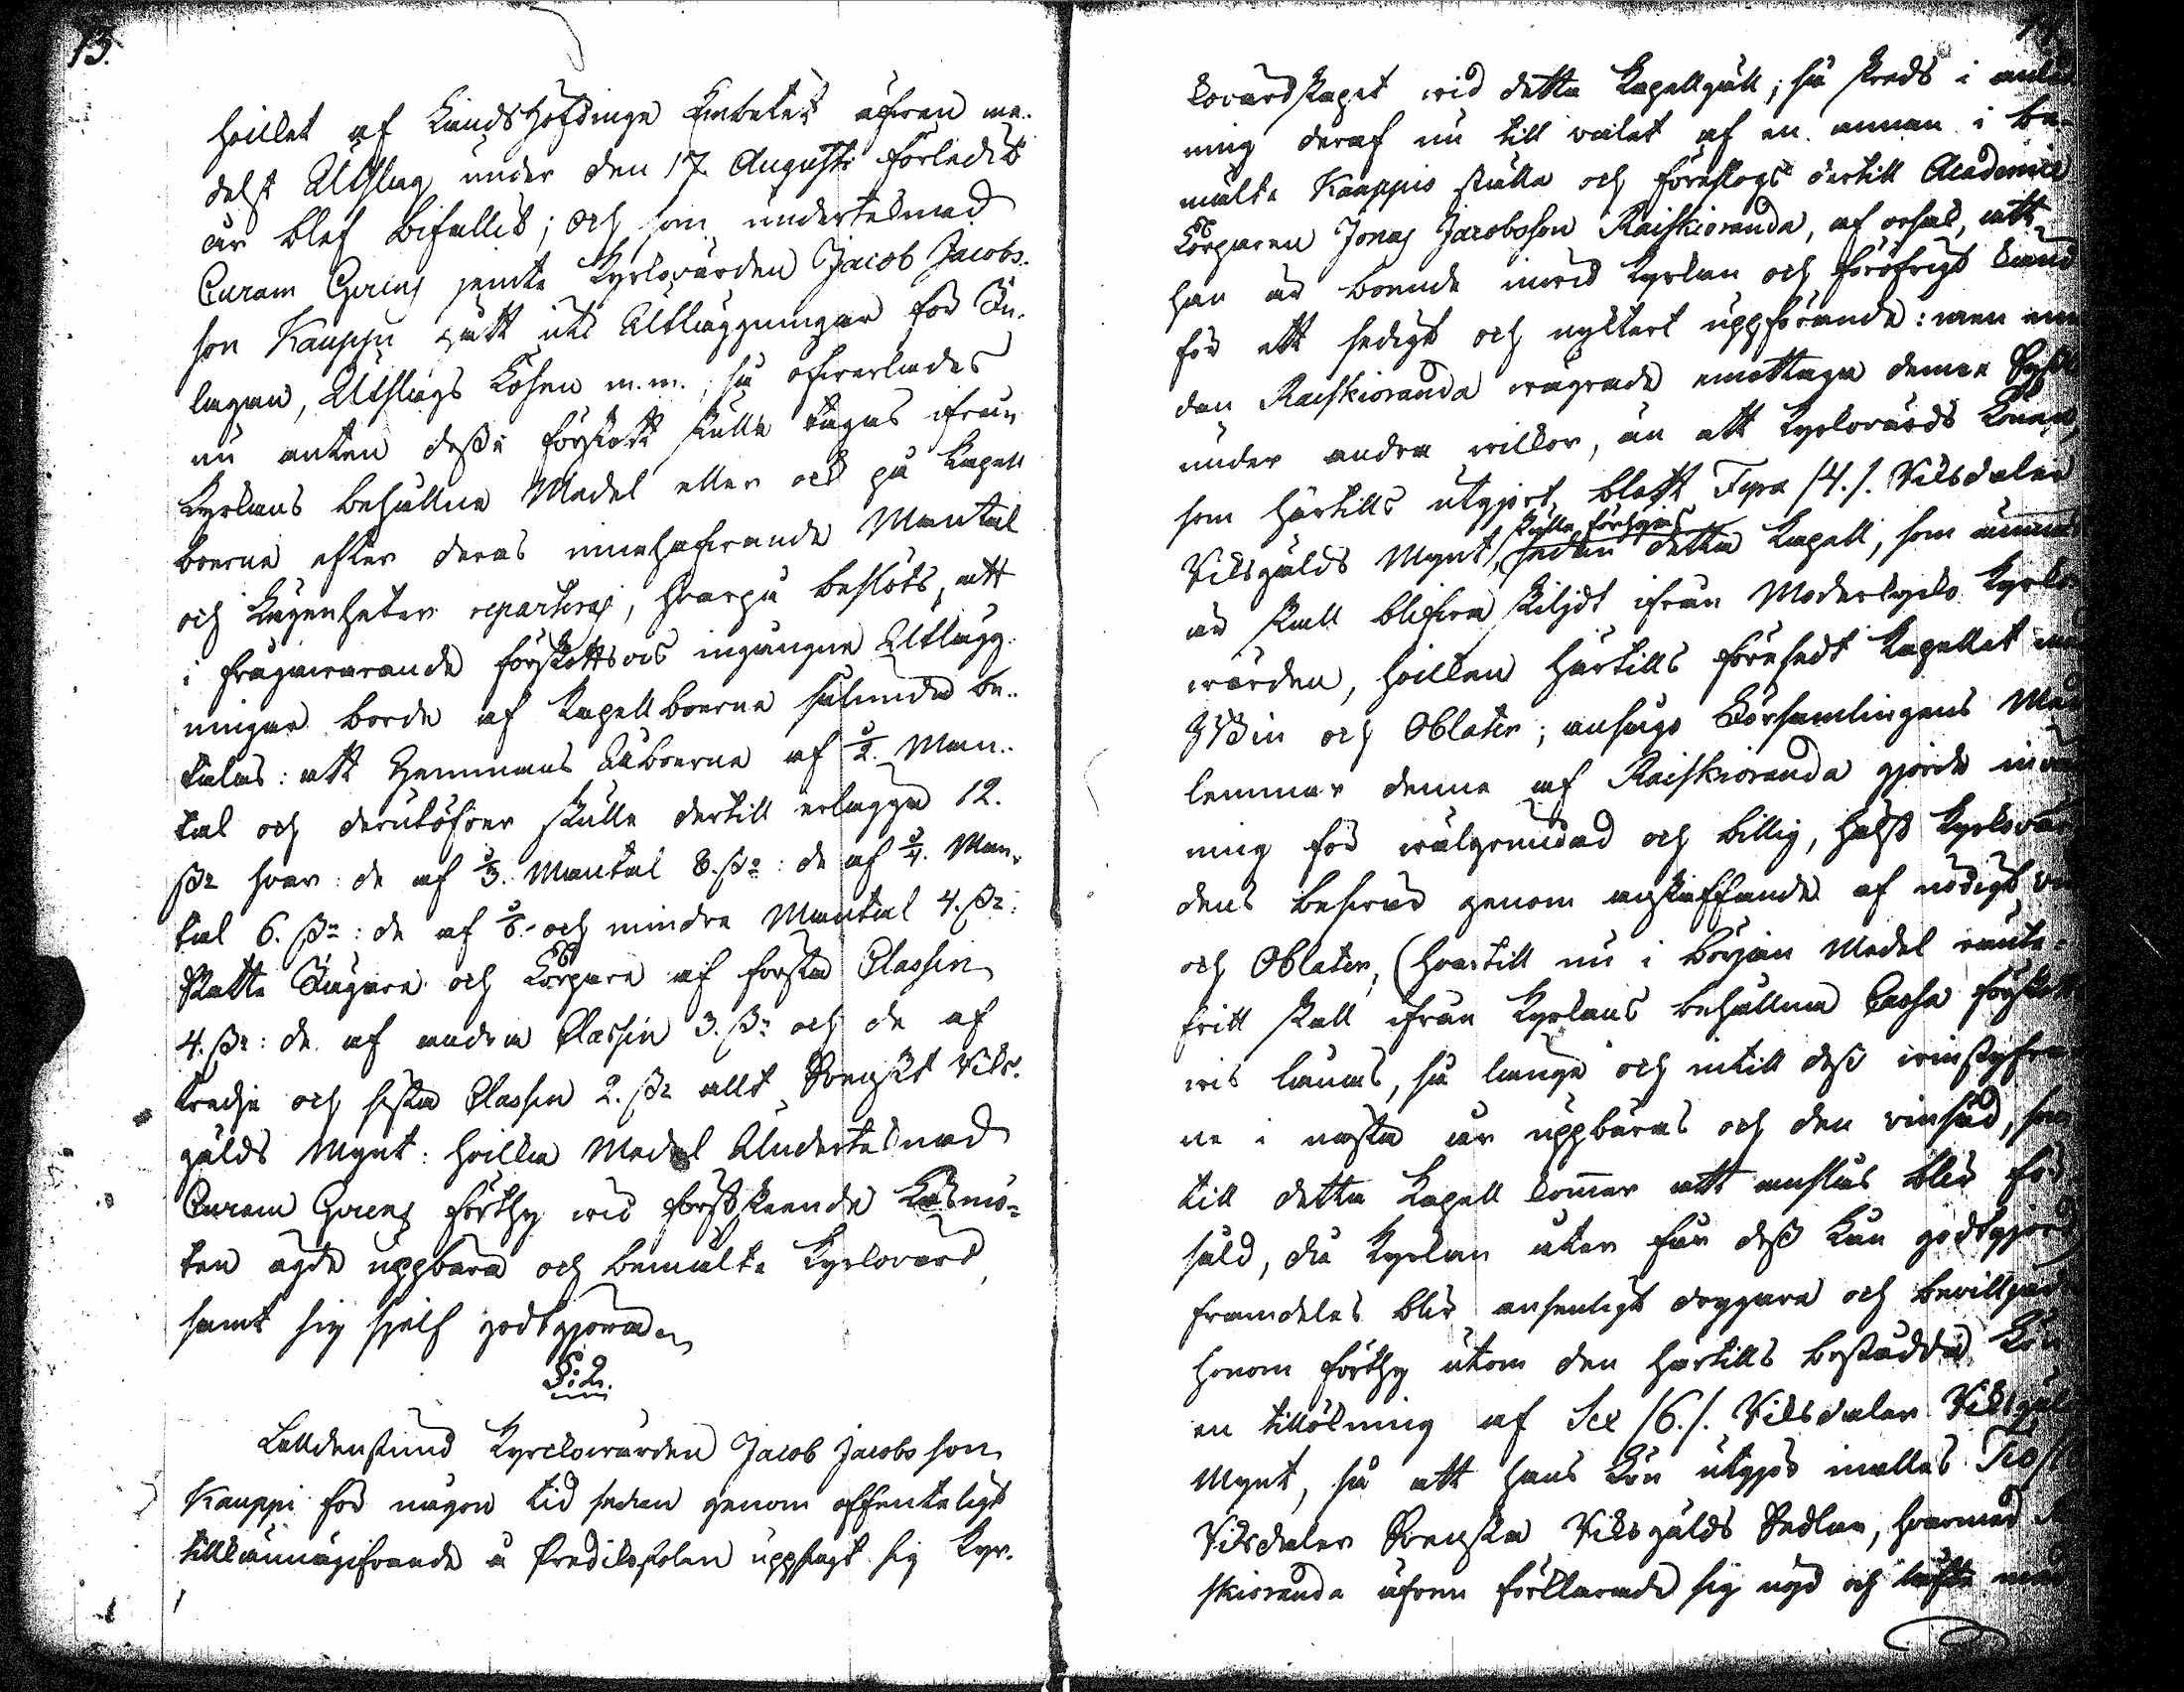 13.
hvilket af LandsHöfdinge Embetet äfven me-
delst Utslag under den 17. Augusti förledit
år blef bifallit; och som undertecknad
Curam Gerens jemte Kyrkovärden Jacob Jacobs-
son Kauppi haft utläggningar för In-
lagan, Utslags Lösen m.m., så öfverlades
nu anten desse förskott skulle tagas ifrån
Kyrkans behållne Medel eller ock på Kapell
boerne efter deras innehafvande Mantal
och Lägenheter reparteras, hvarpå beslöts, att
i frågavarande förskottsvis ingångne Utlägg-
ningar borde af Kapellboerne sålunda be-
talas: att Hemmans Åboerne af 1/2. Man-
tal och derutöfver skulle dertill erlägga 12.
ß hvar: de af 1/3. Mantal 8. ß: de af 1/4. Man-
tal 6. ß: de af 1/6. och mindre Mantal 4. ß:
Skatte Tagare och Torpare af första Classen
4. ß: de af andra Classen 3. ß och de af
tredje och sista Classen 2. ß allt Svenskt Riks-
gälds Mynt: hvilka Medel Undertecknad
Curam Gerens förthy vid först skeende Läsmö-
ten ägde uppbära och bemälte Kyrkovärd
samt sig sjelf godtgöra.
§. 2.
Alldenstund Kyrckovärden Jacob Jacobsson
Kauppi för någon tid sedan genom offenteligt
tillkännagifvande å Predikstolen uppsagt sig Kyr-
kovärdskapet vid detta Kapellgäll; så skreds i anled
ning deraf nu till valet af en annan i be-
mälte Kauppis ställe och föreslogs dertill Academie
Torparen Jonas Jacobsson Raiskioranda, af orsak, att
han är boende invid Kyrkan och föröfrigt känd
för ett sedigt och nyktert uppförande: men
dan Raiskioranda vägrade emottaga denne Syssla
under andra vilkor, än att Kyrkovärds Lönen,
som härtills utgjort blott Fyra /4./ Riksdaler
Riksgälds Mynt, skulle förhöjas sedan detta Kapell, som ämnat
är skall blifva skiljdt ifrån Moderkyrko Kyrko-
värden, hvilken härtills försedt Kapellet med
Win och Oblater; ansågo Församlingens Med
lemmar denne af Raiskioranda gjorde invänd
ning för välgrundad och billig, helst Kyrkovär
dens besvär genom anskaffande af nödigt vin
och Oblater, (hvartill nu i början Medel ränte-
fritt skall ifrån Kyrkans behållna Cassa förskotts
vis lånas, så länge och intill dess vinstyfver
ne i nästa år uppbäras och den vinsäd, som
till detta Kapell kommer att anslås blir för-
såld, då Kyrkan åter får dess Lån godtgjord)
framdeles blir ansenligt drygare och bevilljades
honom förthy utom den härtills bestådda Lön
en tillökning af Sex /6./ Riksdaler Riksgälds
Mynt, så att hans Lön utgör inalles Tio
Riksdaler Svenska Riksgälds Sedlar, hvarmed Rai
skioranda äfven förklarade sig nöjd och lofte